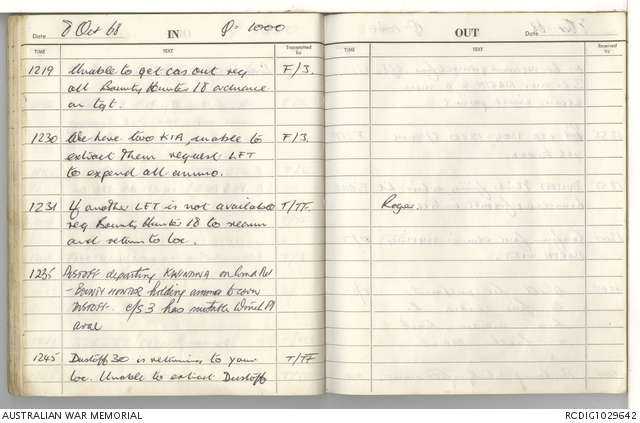 Date 8 Oct 68 IN P- 1000
TIME TEXT Transmitted by
1219 Unable to get cas out req F/3.
all Bounty Hunter 18 ordnance
on tgt.
1230 We have two KIA, unable to F/3
extract them request LFT
to expend all ammo.
1231 If another LFT is not available T/TF.
req Bounty Hunter 18 to rearm
and return to loc.
1235 DUSTOFF departing KWINANA
- BOUNTY HUNTER holding ammo to cover
DUSTOFF. C/S 3 has suitable Winch Pt
1245 Dustoff 30 is returning to your T/TF
loc. Unable to extract Dustoff
Date OUT
TIME TEXT Received by
Roger
AUSTRALIAN WAR MEMORIAL
RCDIG1029642